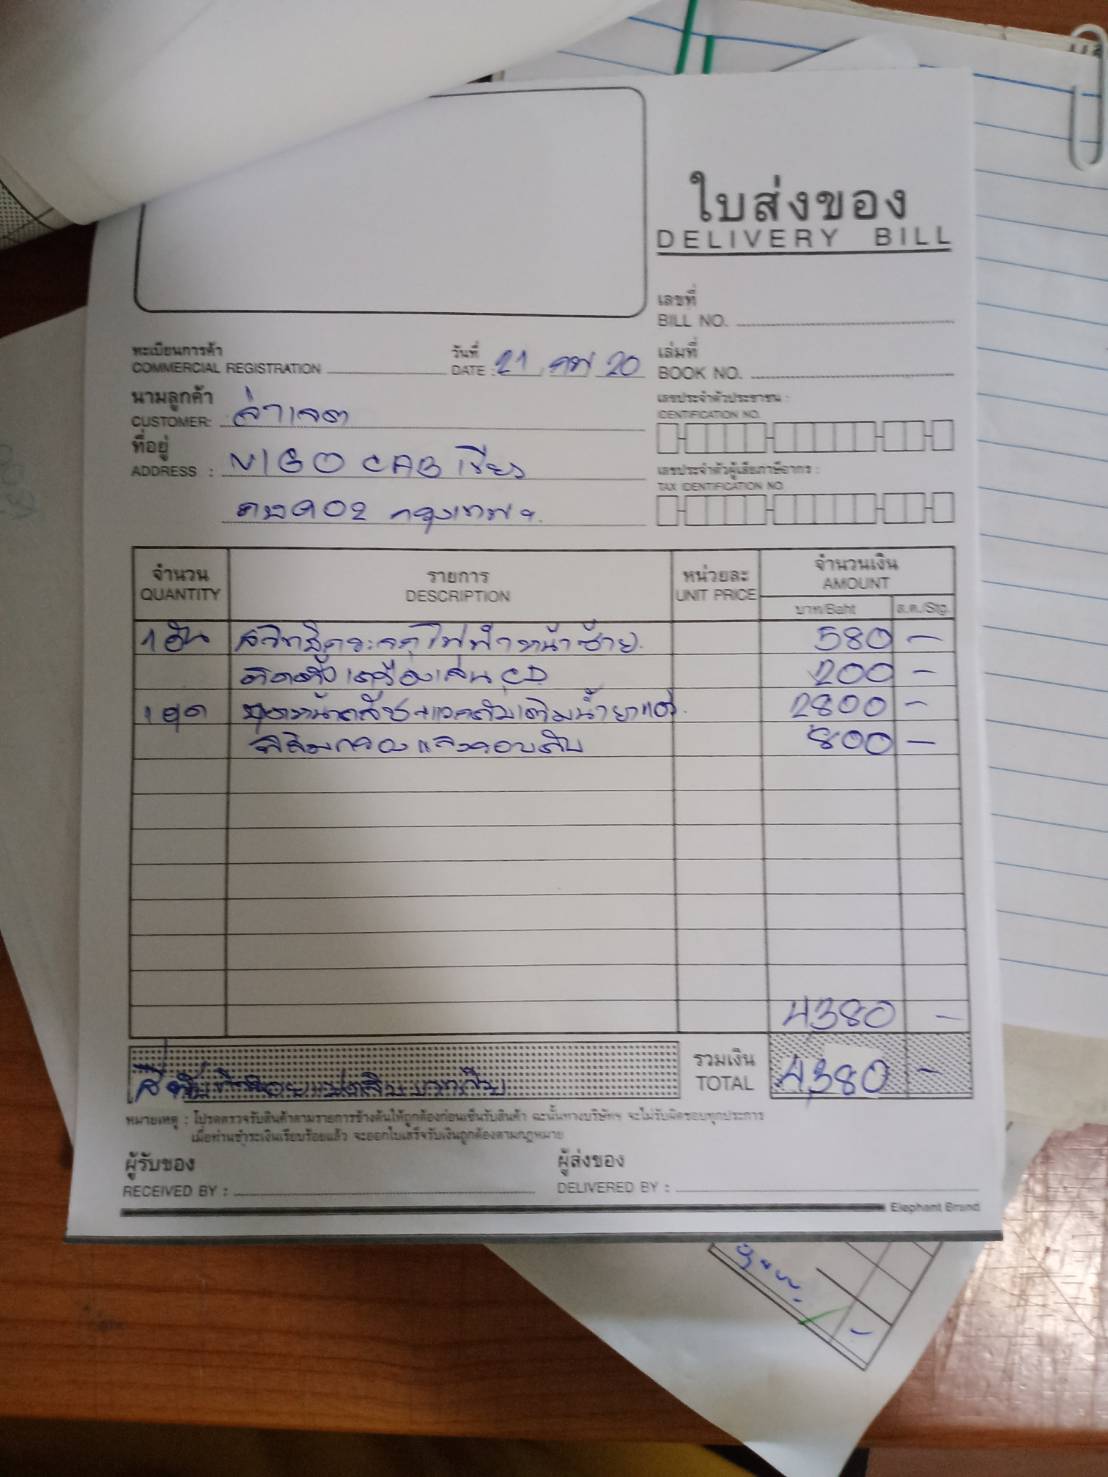 ใบส่งของ
DELIVERY BILL
เลขที่
BILL NO.
ทะเบียนการค้า
COMMERCIAL REGISTRATION
วันที่
DATE : 21 กพ 20
เล่มที่
BOOK NO.
นามลูกค้า
CUSTOMER:
เลขประจำตัวประชาชน :
IDENTIFICATION NO.
ที่อยู่
ADDRESS : CAB เขียว
เลขประจำตัวผู้เสียภาษีอากร :
TAX IDENTIFICATION NO.
902 กรุงเทพฯ
จำนวน รายการ หน่วยละ จำนวนเงิน
QUANTITY DESCRIPTION UNIT PRICE AMOUNT
บาท/Baht ส.ต./Stg.
1 อัน สวิทช์กระจกไฟฟ้าหน้าซ้าย 580 -
ติดตั้งเครื่องเล่น CD 200 -
1 ชุด 2800 -
800 -
4380 -
รวมเงิน
TOTAL 4380 -
หมายเหตุ : โปรดตรวจรับสินค้าตามรายการข้างต้นให้ถูกต้องก่อนเซ็นรับสินค้า ฉะนั้นทางบริษัทฯ จะไม่รับผิดชอบทุกประการ
เมื่อท่านชำระเงินเรียบร้อยแล้ว จะออกใบเสร็จรับเงินถูกต้องตามกฎหมาย
ผู้รับของ ผู้ส่งของ
RECEIVED BY : DELIVERED BY :
Elephant Brand